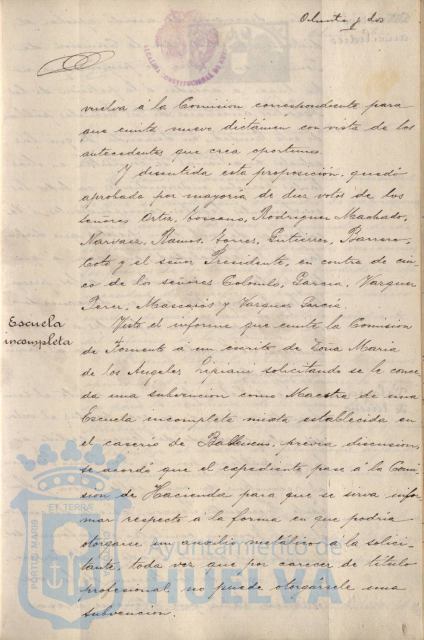 Ochenta y dos
vuelva á la Comision correspondiente para
que emita nuevo dictámen con vista de los
antecedentes que crea oportunos.
Y discutida esta proposicion, quedó
aprobada por mayoria de diez votos de los
señores Ortiz, Toscano, Rodriguez Machado,
Narvaez, Ramos, Torres, Gutierrez, Barrero,
Coto y el señor Presidente, en contra de cin-
co de los señores Colombo, Garcia, Vazquez
Perez, Mascarós y Vazquez Garcia.
Escuela
incompleta
Visto el informe que emite la Comision
de Fomento á un escrito de Doña Maria
de los Angeles solicitando se le conce-
da una subvencion como Maestra de una
Escuela incompleta mixta establecida en
el caserio de previa discusion,
se acordó que el expediente pase á la Comi-
sion de Hacienda para que se sirva infor-
mar respecto á la forma en que podria
otorgarse un auxilio metálico á la solici-
tante, toda vez que por carecer de título
profesional no puede otorgársele una
subvencion.
PORTUS MARIS ET TERRÆ
Ayuntamiento de
HUELVA